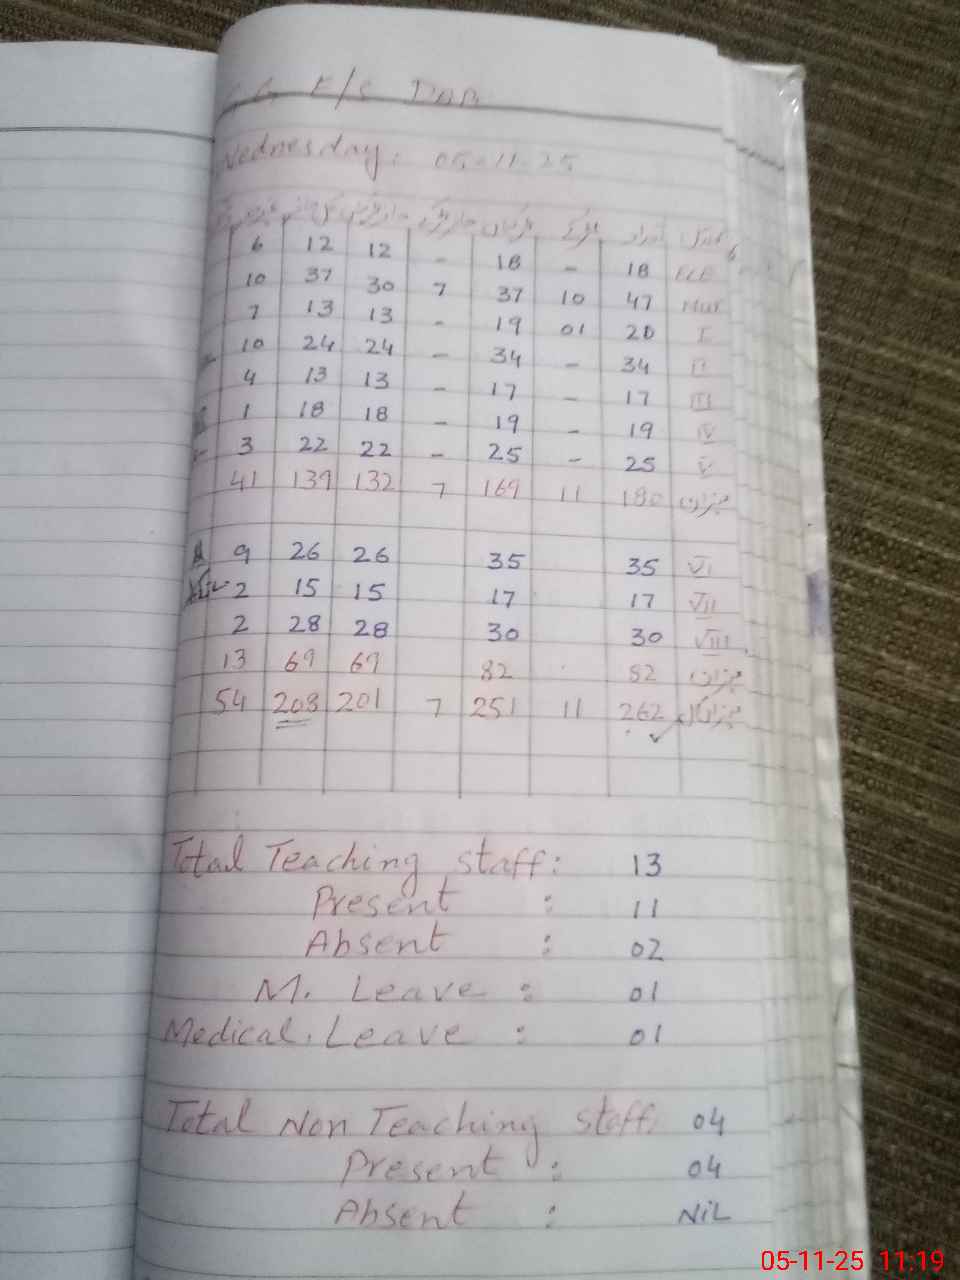 E/S
Wednesday: 05-11-25
6 12 12 - 18 - 18 ECE
10 37 30 7 37 10 47 Nur
7 13 13 - 19 01 20 I
10 24 24 - 34 - 34 II
4 13 13 - 17 - 17 III
1 18 18 - 19 - 19 IV
3 22 22 - 25 - 25 V
41 139 132 7 169 11 180 میزان
9 26 26 35 35 VI
2 15 15 17 17 VII
2 28 28 30 30 VIII
13 69 69 82 82 میزان
54 208 201 7 251 11 262 میزان کل
Total Teaching staff: 13
Present : 11
Absent : 02
M. Leave : 01
Medical. Leave : 01
Total Non Teaching staff: 04
Present : 04
Absent : NiL
05-11-25 11:19